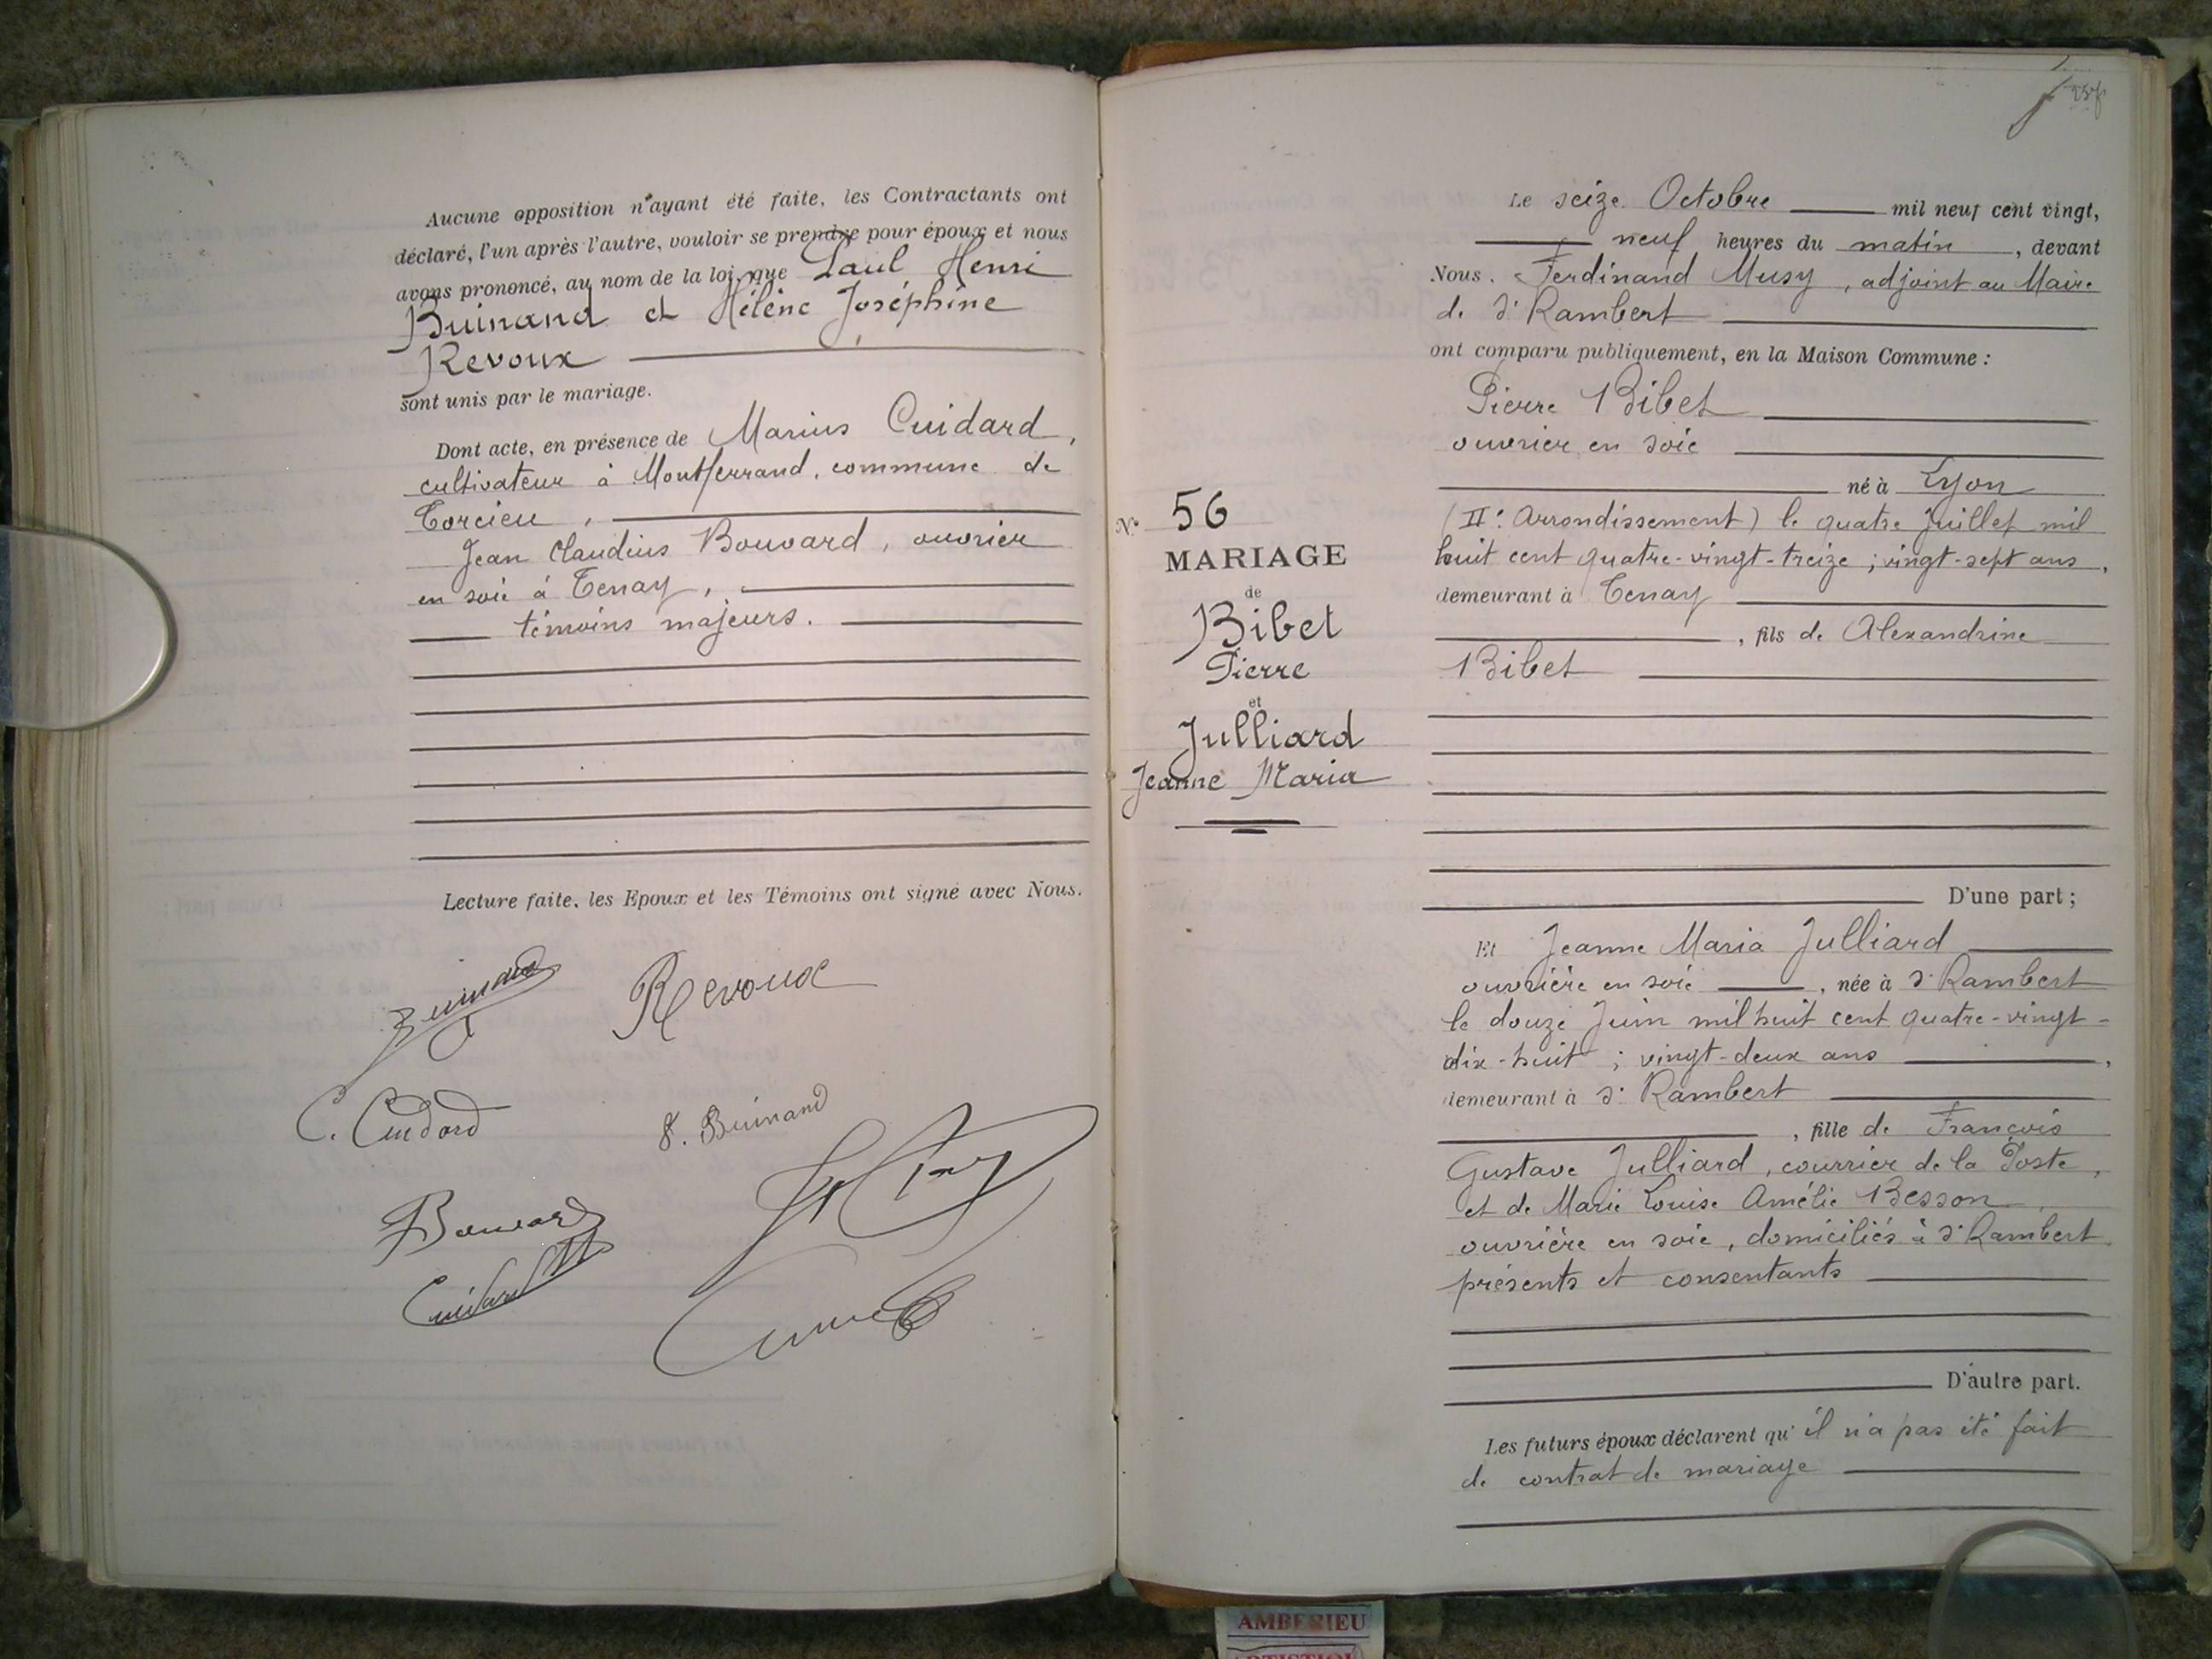 Aucune opposition n'ayant été faite, les Contractants ont
déclaré, l'un après l'autre, vouloir se prendre pour époux et nous
avons prononcé, au nom de la loi, que Paul Henri
Buinand et Hélène Joséphine
Revoux
sont unis par le mariage.
Dont acte, en présence de Marius Cuidard,
cultivateur à Montferrand, commune de
Torcieu,
Jean Claudius Bouvard, ouvrier
en soie à Tenay,
témoins majeurs.
Lecture faite, les Epoux et les Témoins ont signé avec Nous.
Buinand
Revoux
C. Cuidard
F. Buinand
Bouvard
Cuidard
Nº 56
MARIAGE
de
Bibet
Pierre
et
Julliard
Jeanne Maria
Le seize Octobre mil neuf cent vingt,
neuf heures du matin, devant
Nous. Ferdinand Musy, adjoint au Maire
de St Rambert
ont comparu publiquement, en la Maison Commune :
Pierre Bibet
ouvrier en soie
né à Lyon
(IIe Arrondissement) le quatre Juillet mil
huit cent quatre-vingt-treize ; vingt-sept ans,
demeurant à Tenay
, fils de Alexandrine
Bibet
D'une part ;
Et Jeanne Maria Julliard
ouvrière en soie, née à St Rambert
le douze Juin mil huit cent quatre-vingt-
dix-huit ; vingt-deux ans,
demeurant à St Rambert
, fille de François
Gustave Julliard, courrier de la Poste,
et de Marie Louise Amélie Besson
ouvrière en soie, domiciliés à St Rambert,
présents et consentants
D'autre part.
Les futurs époux déclarent qu'il n'a pas été fait
de contrat de mariage
AMBERIEU